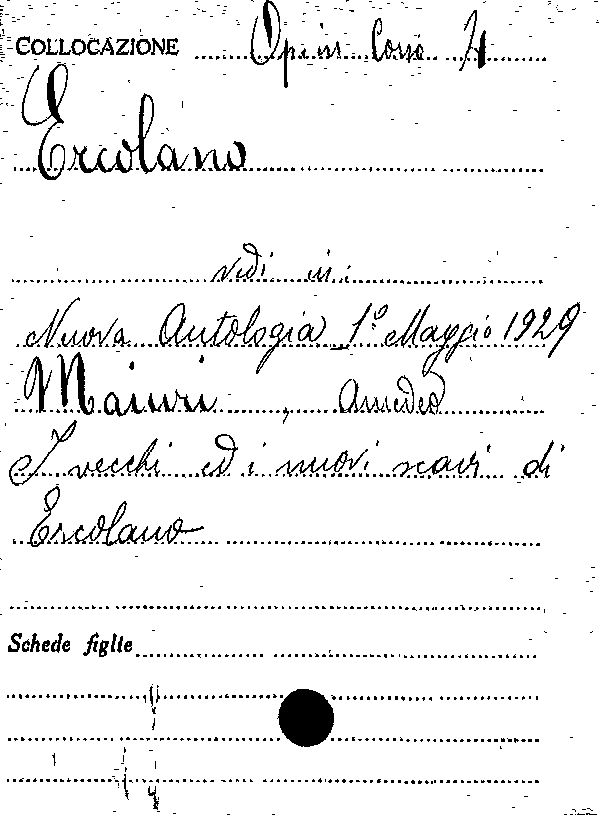 COLLOCAZIONE Opusc Corso 4
Ercolano
vedi in:
Nuova Antologia 1º Maggio 1929
Maiuri, Amedeo
I vecchi ed i nuovi scavi di
Ercolano
Schede figlie